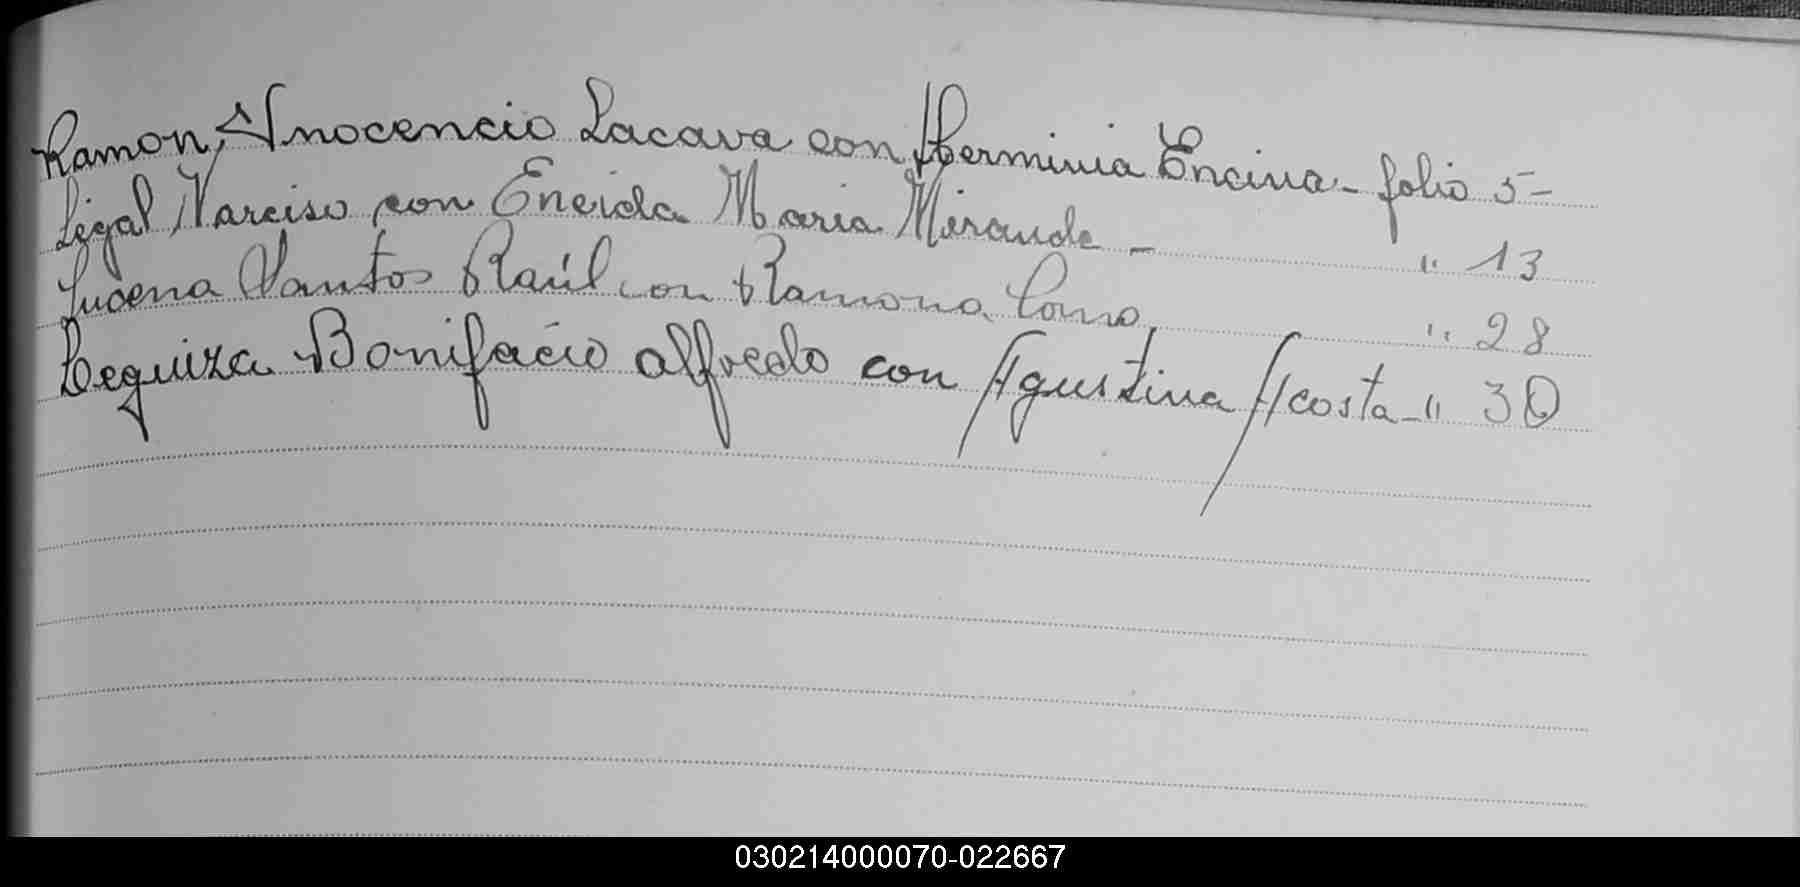 Ramon, Inocencio Lacava con Herminia Encina - folio 5-
Legal Narciso con Eneida Maria Miranda - " 13
Lucena Santos Raúl con Ramona " 28
Leguiza Bonifacio alfredo con Agustina Acosta - " 30
030214000070-022667